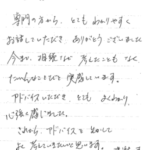 専門の方から、とてもわかりやすく
お話していただき ありがとうございました
今まで、相続など 考えたことも なく
だったことだと 実感しています。
アドバイスいただき、とても よくわかり
心強く感じました。
これから、アドバイスを 生かして
よく 考えていきたいと思います。